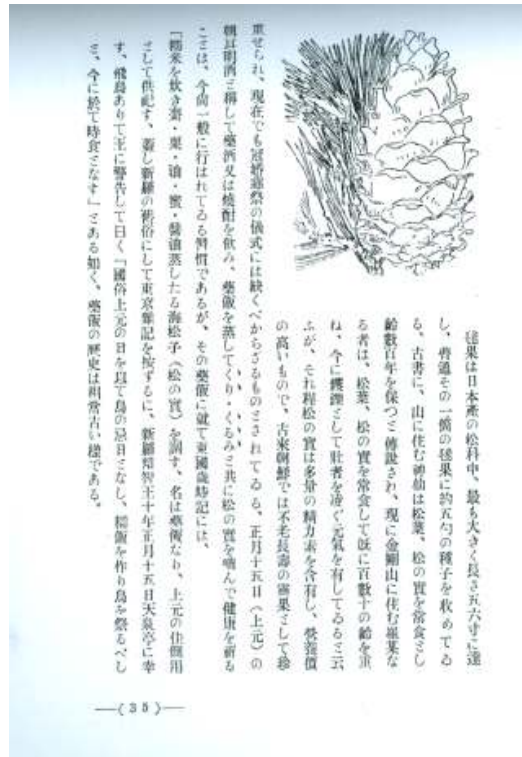 毬果は日本產の松科中、最も大きく長さ五六寸に達
し、普通その一箇の毬果に約五勺の種子を收めてゐ
る、古書に、山に住む神仙は松葉、松の實を常食とし
齡數百年を保つと傳說され、現に金剛山に住む
る者は、松葉、松の實を常食して旣に百數十の齡を重
ね、今に矍鑠として壯者を凌ぐ元氣を有してゐると云
ふが、それ程松の實は多量の精力素を含有し、營養價
の高いもので、古來朝鮮では不老長壽の靈果として珍
重せられ、現在でも冠婚葬祭の儀式には缺くべからざるものとされてゐる、正月十五日(上元)の
朝耳明酒と稱して藥酒又は燒酎を飮み、藥飯を蒸してくり・くるみと共に松の實を嚙んで健康を祈る
ことは、今尙一般に行はれてゐる習慣であるが、その藥飯に就て東國歲時記には、
「糯米を炊き棗・栗・油・蜜・醬油蒸したる海松子(松の實)を調す、名は藥飯なり、上元の佳饌用
として供祀す、蓋し新羅の舊俗にして東京雜記を按ずるに、新羅炤智王十年正月十五日天泉亭に幸
す、飛烏ありて王に警告して曰く「國俗上元の日を以て烏の忌日となし、糯飯を作り烏を祭るべし
と、今に於て時食となす」とある如く、藥飯の歷史は相當古い樣である。
—(35)—